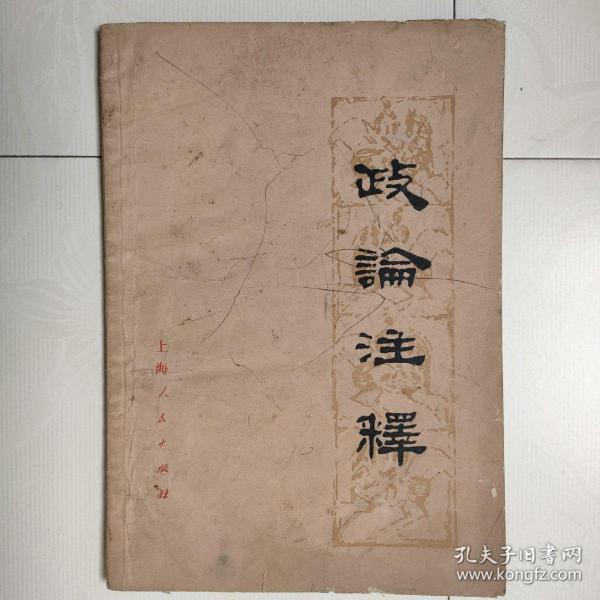 政論注釋
上海人民出版社
孔夫子旧書网
www.kongfz.com